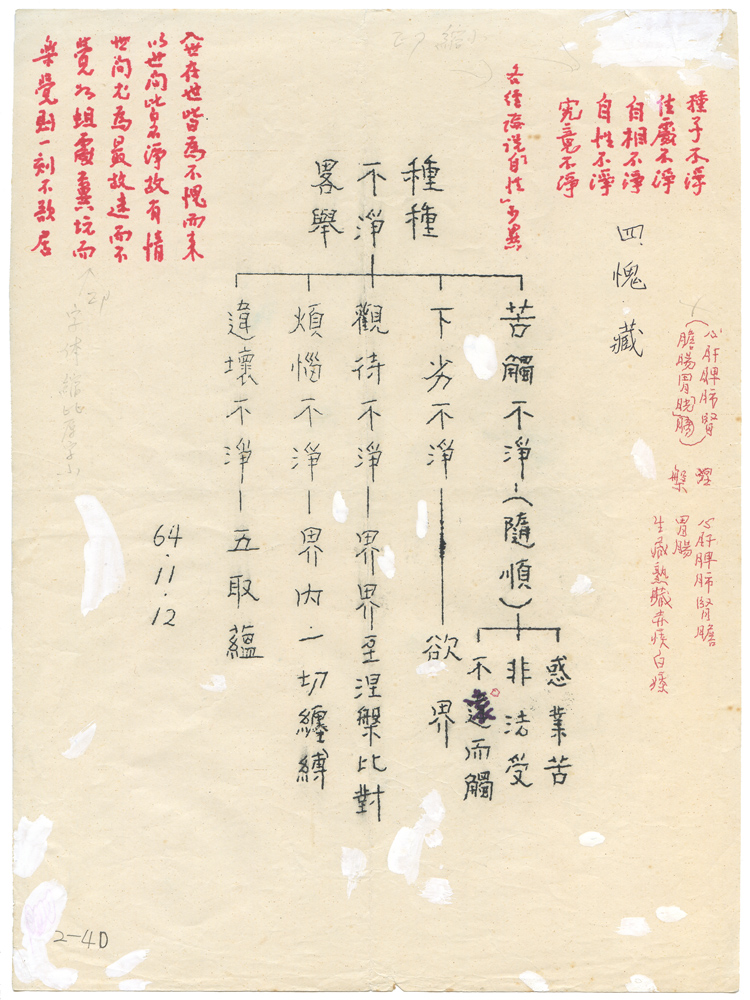 種子不淨
住處不淨
自相不淨
自性不淨
究竟不淨
四．愧．藏
心肝脾肺腎
膽腸胃
涅
槃
心肝脾肺腎膽
胃腸
生藏熟藏赤痰白痰
種種
不淨
畧舉
苦觸不淨—（隨順）
惑業苦
非法受
不遠而觸
下劣不淨—欲界
觀待不淨—界界至涅槃比對
煩惱不淨—界內．一切纏縛
違壞不淨—五取蘊
入世存世皆為不愧而来
以世間皆不淨故有情
世間尤為最故遠而不
覺如蛆處糞坑而
樂覺則一刻不欲居
印
64.11.12
2-4D